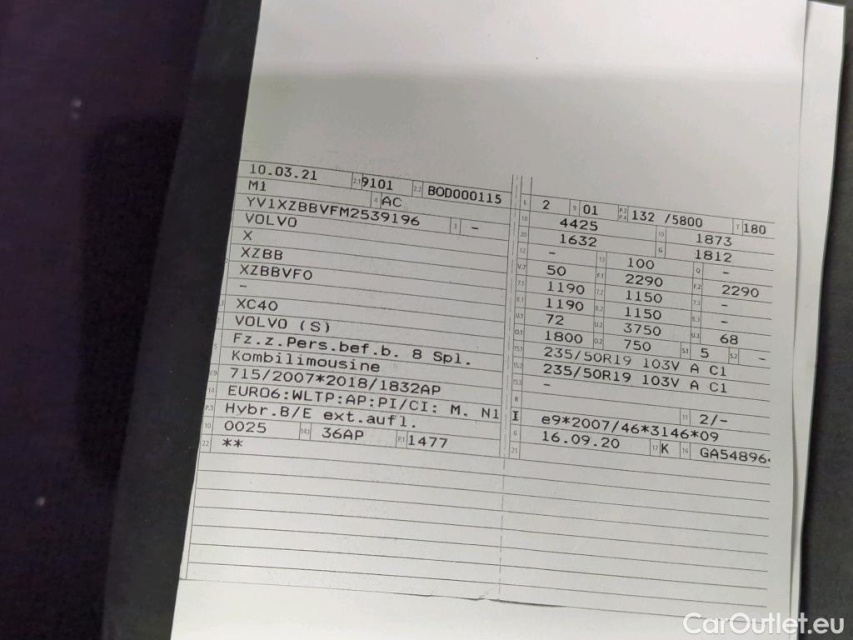 10.03.21 2.1 9101 2.2 BOD000115
M1 4 AC
YV1XZBBVFM2539196 3 -
VOLVO
X
XZBB
XZBBVFO
-
XC40
VOLVO (S)
Fz.z.Pers.bef.b. 8 Spl.
Kombilimousine
715/2007*2018/1832AP
EURO6:WLTP:AP:PI/CI: M. N1 I
Hybr.B/E ext.aufl.
0025 36AP 1477
**
2 01 132 /5800 180
4425 1873
1632 1812
- 100 -
50 2290 2290
1190 1150 -
1190 1150 -
72 3750 68
1800 750 5 -
235/50R19 103V A C1
235/50R19 103V A C1
-
2/-
e9*2007/46*3146*09
16.09.20 K GA54896
CarOutlet.eu